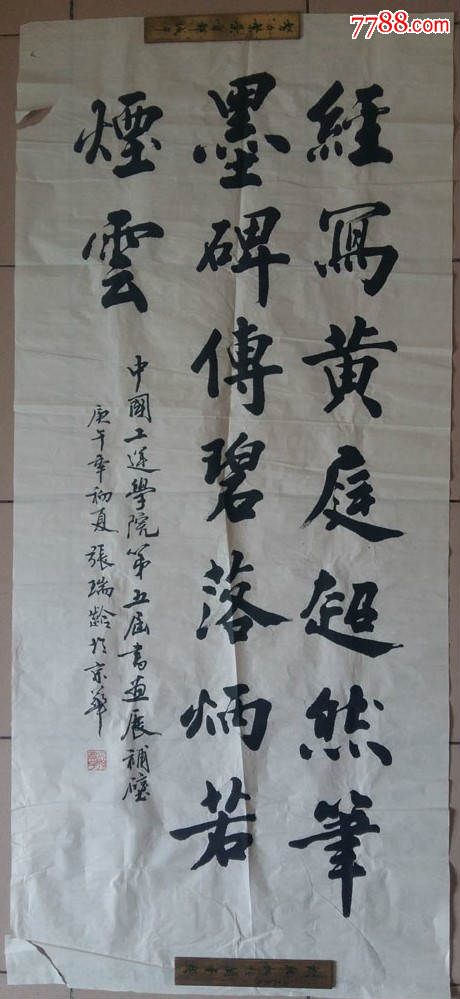 經寫黄庭超然筆
墨碑傳碧落炳若
煙雲
中國工運學院第五届書画展補壁
庚午年初夏 張瑞齡於京華
7788.com